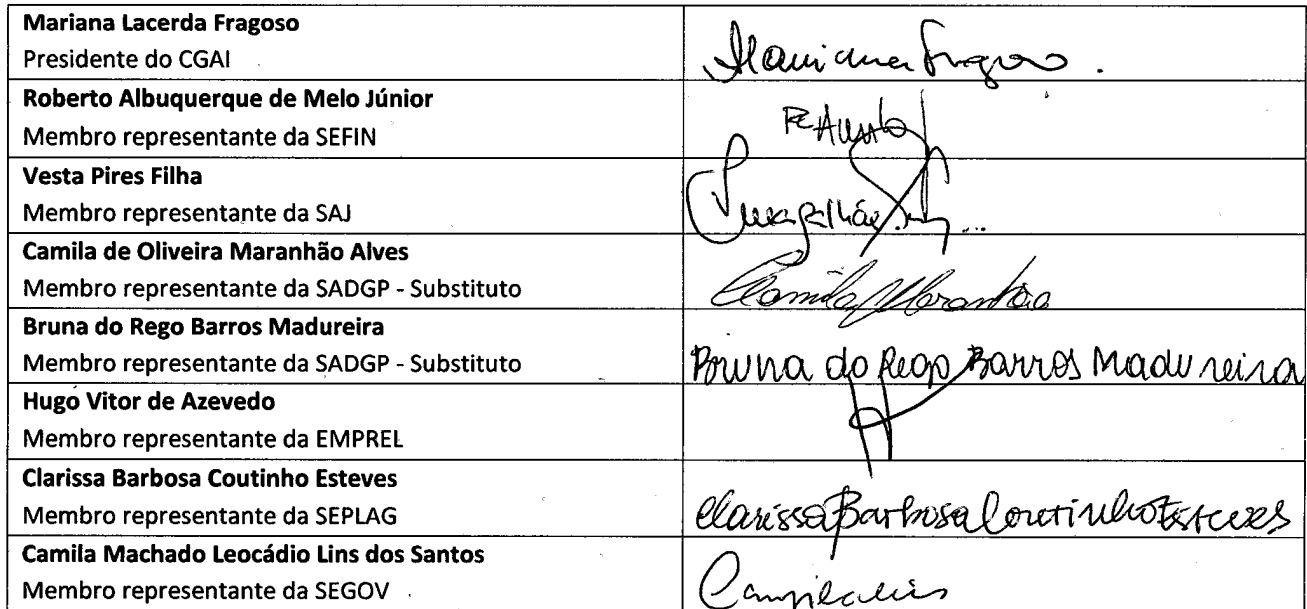 Mariana Lacerda Fragoso
Presidente do CGAI
Mariana Fragoso.
Roberto Albuquerque de Melo Júnior
Membro representante da SEFIN
Vesta Pires Filha
Membro representante da SAJ
Camila de Oliveira Maranhão Alves
Membro representante da SADGP - Substituto
Camila Maranhão
Bruna do Rego Barros Madureira
Membro representante da SADGP - Substituto
Bruna do Rego Barros Madureira
Hugo Vitor de Azevedo
Membro representante da EMPREL
Clarissa Barbosa Coutinho Esteves
Membro representante da SEPLAG
Clarissa Barbosa Coutinho Esteves
Camila Machado Leocádio Lins dos Santos
Membro representante da SEGOV